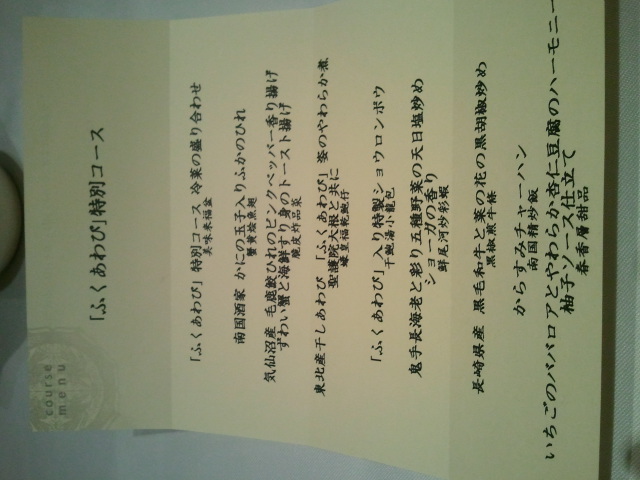 course
menu
「ふくあわび」特別コース
「ふくあわび」特別コース 冷菜の盛り合わせ
美味来福盆
南国酒家 かにの玉子入りふかのひれ
蟹黄燴魚翅
気仙沼産 毛鹿鮫ひれのピンクペッパー香り揚げ
ずわい蟹と海鮮すり身のトースト揚げ
脆皮炸品菜
東北産干しあわび 「ふくあわび」 姿のやわらか煮
聖護院大根と共に
蠔皇福乾鮑仔
「ふくあわび」入り特製ショウロンポウ
干鮑湯小籠包
鬼手長海老と彩り五種野菜の天日塩炒め
ショーガの香り
鮮尾河炒彩蝦
長崎県産 黒毛和牛と菜の花の黒胡椒炒め
黒椒煎牛條
からすみチャーハン
南国精炒飯
いちごのババロアとやわらか杏仁豆腐のハーモニー
柚子ソース仕立て
春香層甜品